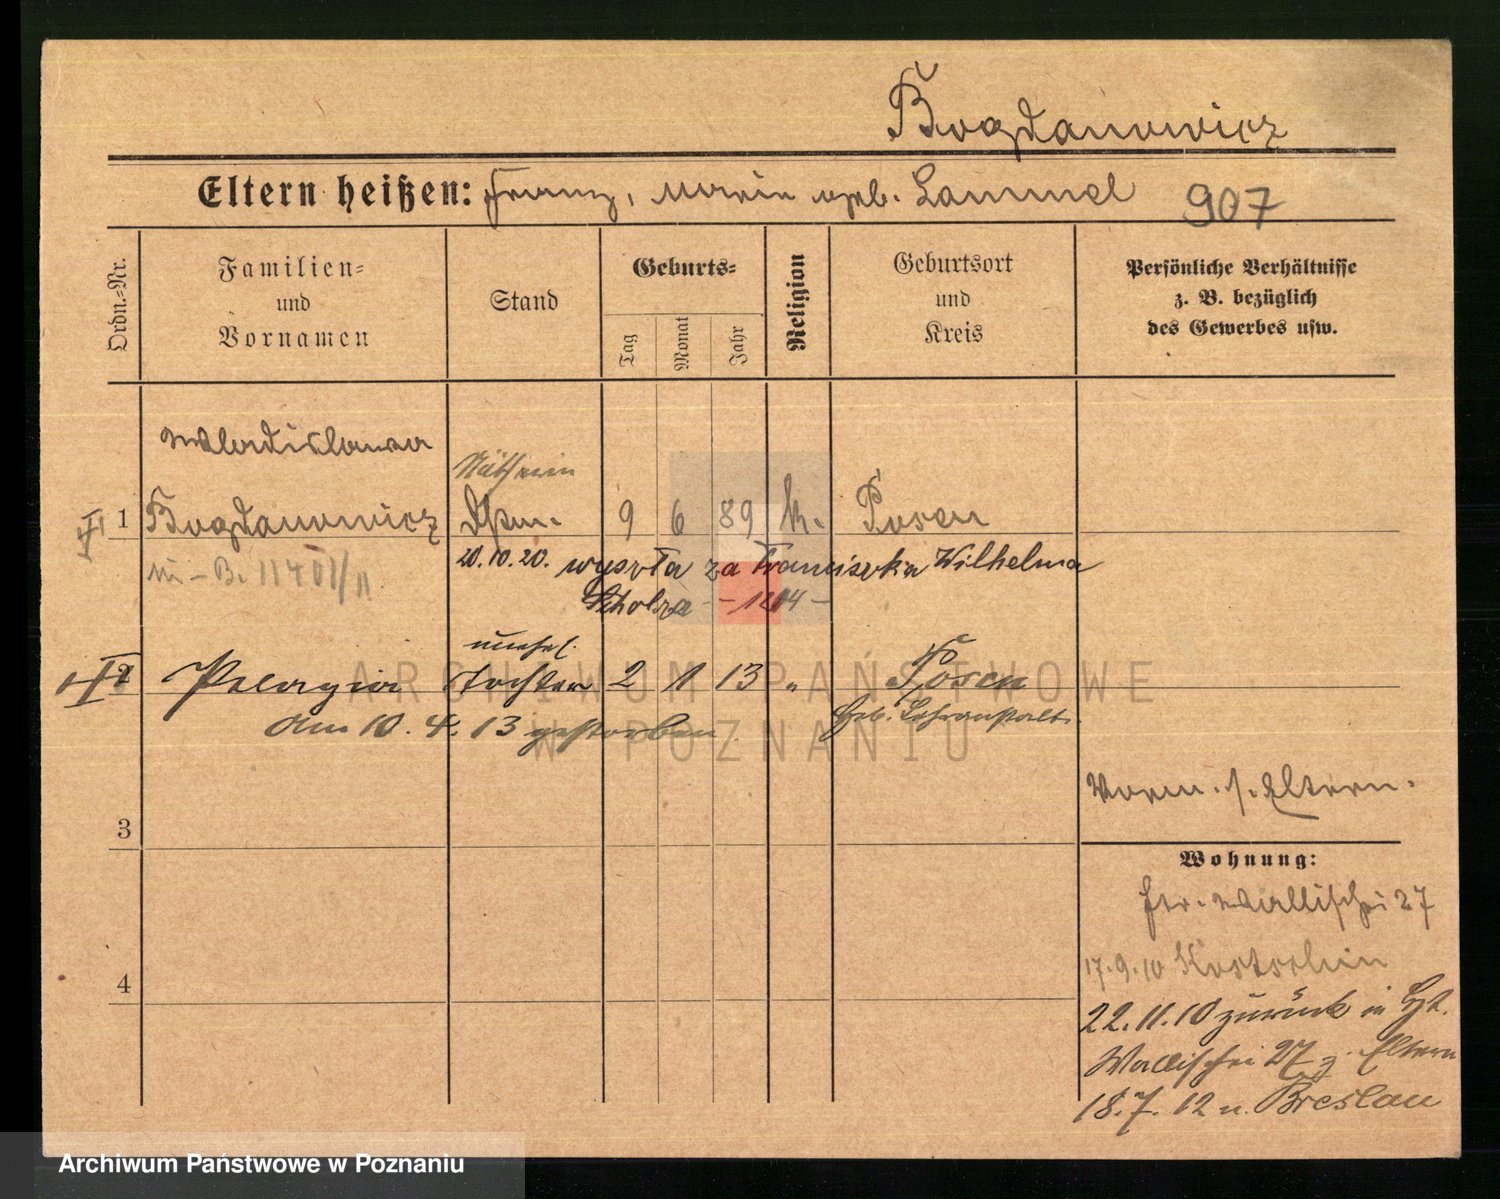 Bogdanowicz
Eltern heißen: Franz, Marie geb. Lammel 907
Ordn.=Nr.
Familien=
und
Vornamen
Stand
Geburts=
Tag
Monat
Jahr
Religion
Geburtsort
und
Kreis
Persönliche Verhältnisse
z. B. bezüglich
des Gewerbes usw.
Wladislawa
Näherin
1 Bogdanowicz 9 6 89 k. Posen
20.10.20. wyszła za Franciszka Wilhelma
Scholza
2 Pelagia
unehel.
Tochter 2 1 13 „ Posen
Am 10. 4. 13 gestorben
Vorm. s. Eltern.
3
Wohnung:
fr. Wallischei 27
4
17.9.10 Kostschin
22.11.10 zurück in
Wallischei 27 z. Eltern
18.7.12 n. Breslau
ARCHIWUM PAŃSTWOWE
W POZNANIU
Archiwum Państwowe w Poznaniu